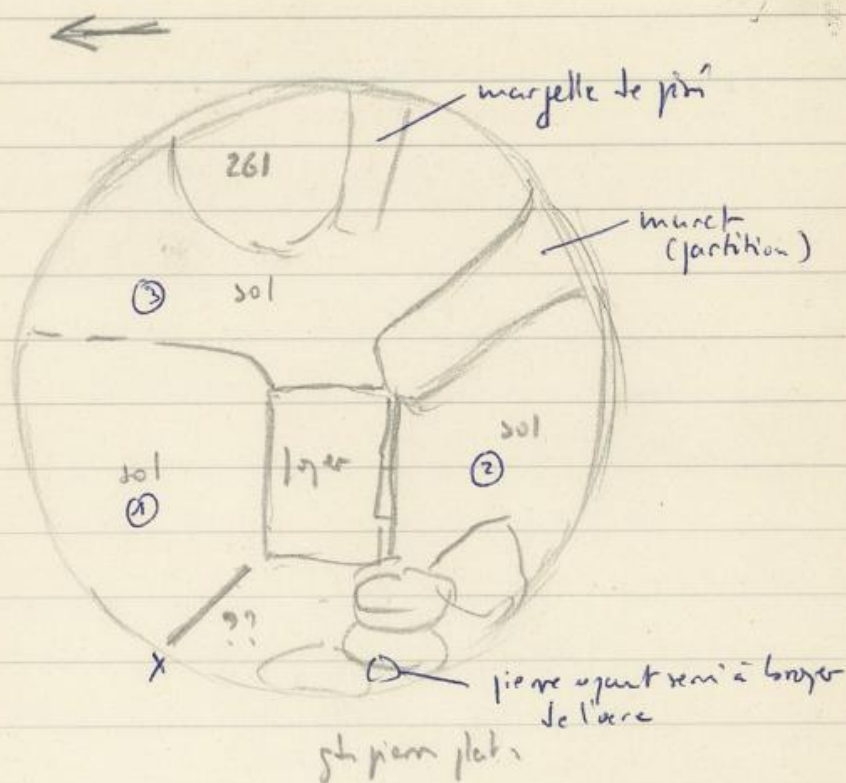 margelle de pisé
261
muret
(partition)
3
sol
sol
foyer
2
sol
1
??
X
pierre ayant servi à broyer
de l'ocre
gdes pierres plates